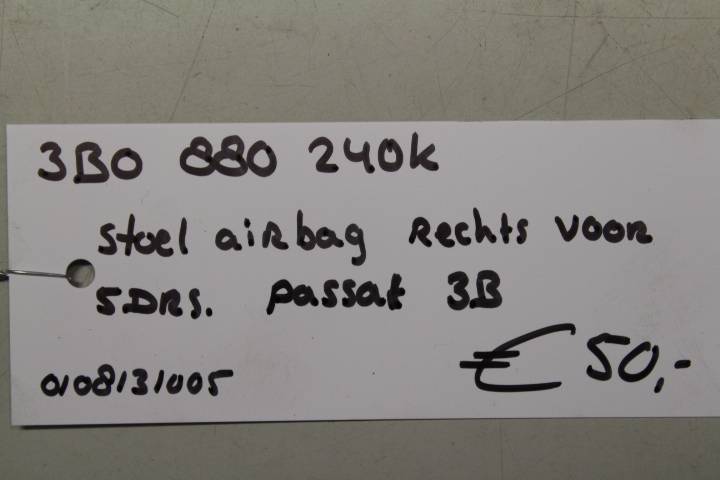 3B0 880 240K
stoel airbag Rechts voor
5DRS. passat 3B
€ 50,-
0108131005